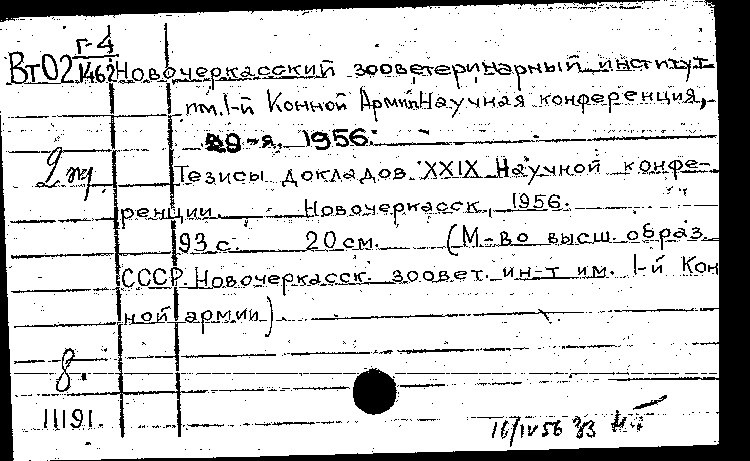 Г-4
Вт02 1462 Новочеркасский зооветеринарный институт
им. 1-й Конной Армии Научная конференция,
29-я. 1956.
2
Тезисы докладов XXIX Научной конфе-
ренции. Новочеркасск, 1956.
93 с. 20 см. (М-во высш. образ.
СССР. Новочеркасск. зоовет. ин-т им. 1-й Кон
ной армии).
8.
11191.
16/IV 56